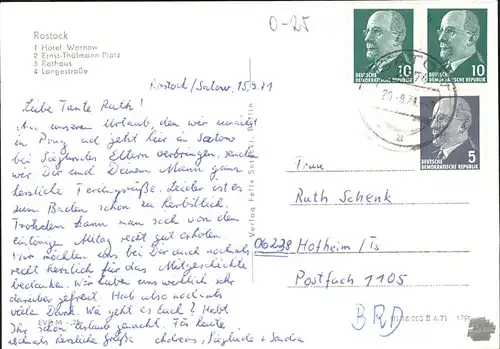 0-25
Rostock
1 Hotel Warnow
2 Ernst-Thälmann-Platz
3 Rathaus
4 Langestraße
Rostock/Satow, 15.9.71
Liebe Tante Ruth!
unseren Urlaub, den wir zunächst
in Prag und jetzt hier in Satow
bei Sieglindes Eltern verbringen, senden
wir Dir und Deinem Mann ganz
herzliche Feriengrüße. Leider ist es
zum Baden schon zu herbstlich.
Trotzdem kann man sich von dem
eintönigen Alltag recht gut erholen.
Wir möchten uns bei Dir auch nochmals
recht herzlich für das Mitgeschickte
bedanken. Wir haben uns wirklich sehr
darüber gefreut. Hab also nochmals
vielen Dank. Wie geht es Euch? Habt
Ihr schon Urlaub gemacht. Für heute
nochmals herzliche Grüße Andreas, Sieglinde + Sandra
EVP M -,25
Verlag Felix Berlin
10
DEUTSCHE
DEMOKRATISCHE REPUBLIK
10
DEUTSCHE
DEMOKRATISCHE REPUBLIK
5
DEUTSCHE
DEMOKRATISCHE REPUBLIK
Frau
Ruth Schenk
6238 Hofheim/Ts
Postfach 1105
BRD